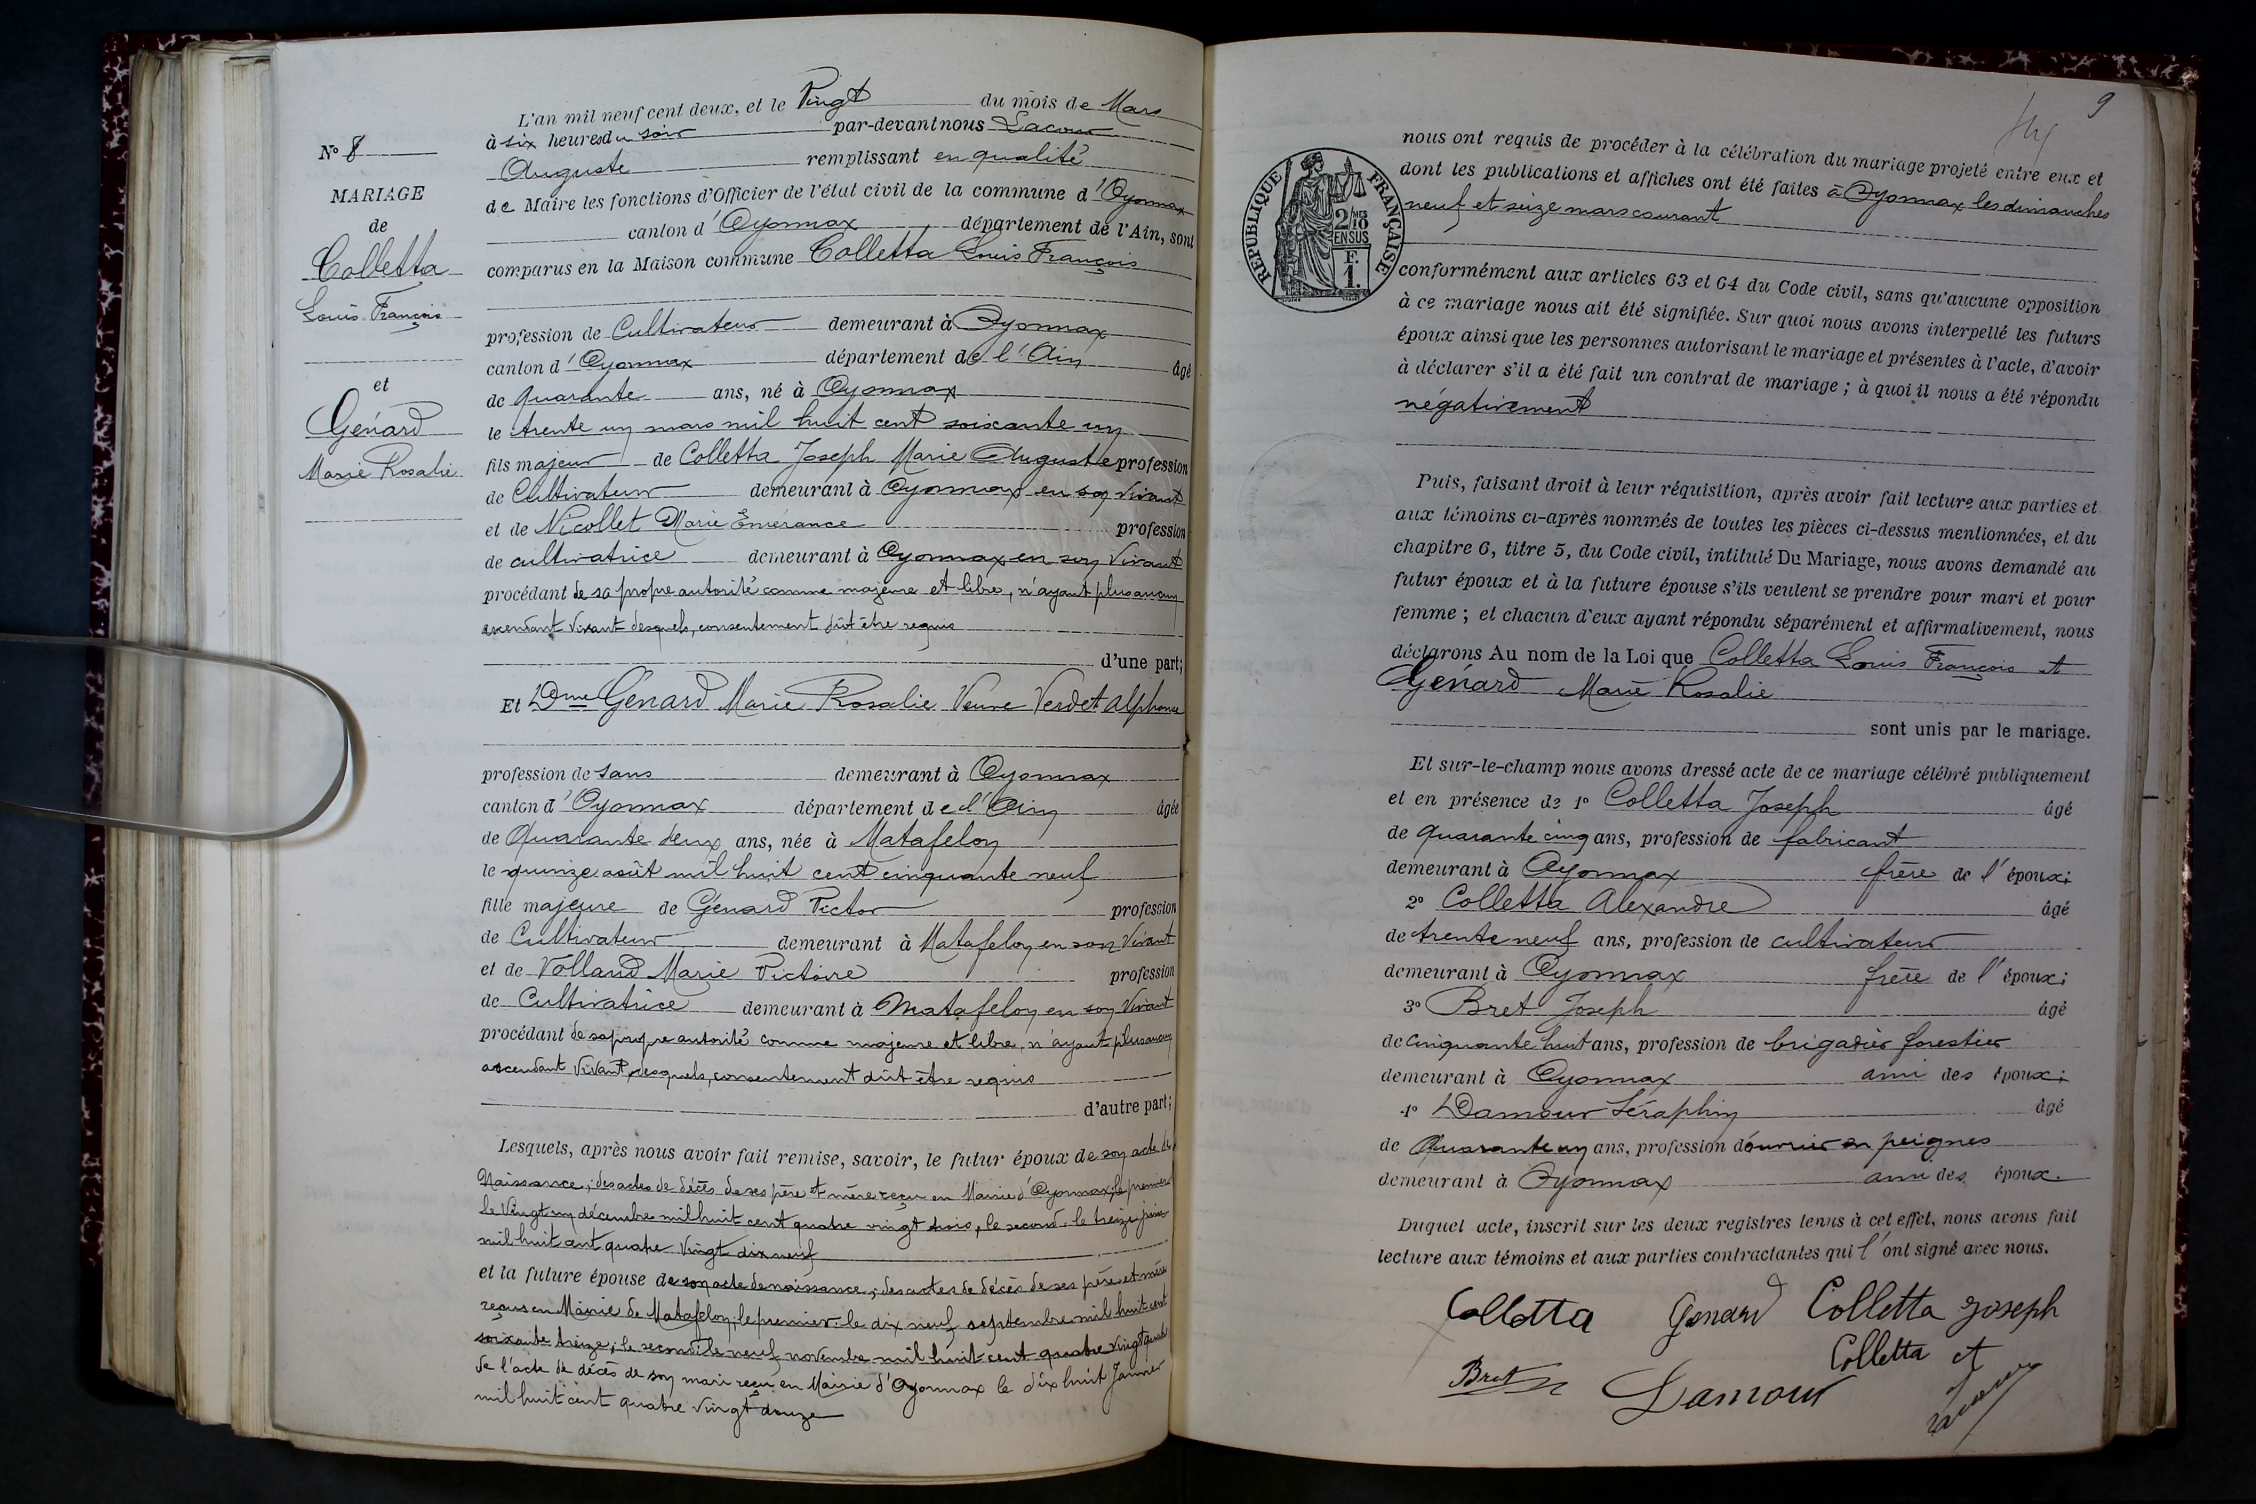 N° 8
MARIAGE
de
Colletta
Louis François
et
Génard
Marie Rosalie
L'an mil neuf cent deux, et le Vingt du mois de Mars
à six heures du soir par-devant nous Lacour
Auguste remplissant en qualité
de Maire les fonctions d'Officier de l'état civil de la commune d'Oyonnax
canton d'Oyonnax département de l'Ain, sont
comparus en la Maison commune Colletta Louis François
profession de Cultivateur demeurant à Oyonnax
canton d'Oyonnax département de l'Ain âgé
de quarante ans, né à Oyonnax
le trente un mars mil huit cent soixante un
fils majeur de Colletta Joseph Marie Auguste profession
de Cultivateur demeurant à Oyonnax en son vivant
et de Nicollet Marie Emérance profession
de cultivatrice demeurant à Oyonnax en son vivant
procédant de sa propre autorité comme majeur et libre, n'ayant plus aucun
ascendant vivant desquels, consentement dût être requis
d'une part;
Et Dme Génard Marie Rosalie Veuve Verdet Alphonse
profession de sans demeurant à Oyonnax
canton d'Oyonnax département de l'Ain âgée
de Quarante deux ans, née à Matafelon
le quinze août mil huit cent cinquante neuf
fille majeure de Génard Victor profession
de Cultivateur demeurant à Matafelon en son vivant
et de Volland Marie Victoire profession
de Cultivatrice demeurant à Matafelon en son vivant
procédant de sa propre autorité comme majeure et libre, n'ayant plus aucun
ascendant vivant, desquels, consentement dût être requis
d'autre part;
Lesquels, après nous avoir fait remise, savoir, le futur époux de son acte de
Naissance; des actes de décès de ses père et mère reçus en Mairie d'Oyonnax, le premier
le vingt un décembre mil huit cent quatre vingt trois, le second, le treize juin
mil huit cent quatre vingt dix neuf
et la future épouse de son acte de naissance; des actes de décès de ses père et mère
reçus en Mairie de Matafelon, le premier le dix neuf septembre mil huit cent
soixante treize; le second le neuf novembre mil huit cent quatre vingt
de l'acte de décès de son mari reçu en Mairie d'Oyonnax le dix huit Janvier
mil huit cent quatre vingt douze
9
nous ont requis de procéder à la célébration du mariage projeté entre eux et
dont les publications et affiches ont été faites à Oyonnax les dimanches
neuf et seize mars courant
RÉPUBLIQUE FRANÇAISE
2/10 MES
EN SUS
F.
1.
conformément aux articles 63 et 64 du Code civil, sans qu'aucune opposition
à ce mariage nous ait été signifiée. Sur quoi nous avons interpellé les futurs
époux ainsi que les personnes autorisant le mariage et présentes à l'acte, d'avoir
à déclarer s'il a été fait un contrat de mariage; à quoi il nous a été répondu
négativement
Puis, faisant droit à leur réquisition, après avoir fait lecture aux parties et
aux témoins ci-après nommés de toutes les pièces ci-dessus mentionnées, et du
chapitre 6, titre 5, du Code civil, intitulé Du Mariage, nous avons demandé au
futur époux et à la future épouse s'ils veulent se prendre pour mari et pour
femme; et chacun d'eux ayant répondu séparément et affirmativement, nous
déclarons Au nom de la Loi que Colletta Louis François et
Génard Marie Rosalie
sont unis par le mariage.
Et sur-le-champ nous avons dressé acte de ce mariage célébré publiquement
et en présence de 1° Colletta Joseph âgé
de quarante cinq ans, profession de fabricant
demeurant à Oyonnax frère de l'époux;
2° Colletta Alexandre âgé
de trente neuf ans, profession de cultivateur
demeurant à Oyonnax frère de l'époux;
3° Bret Joseph âgé
de cinquante huit ans, profession de brigadier forestier
demeurant à Oyonnax ami des époux;
4° Damour Séraphin âgé
de Quarante un ans, profession d'ouvrier en peignes
demeurant à Oyonnax ami des époux.
Duquel acte, inscrit sur les deux registres tenus à cet effet, nous avons fait
lecture aux témoins et aux parties contractantes qui l'ont signé avec nous.
Colletta Genard Colletta Joseph
Colletta A
Bret Damour Lacour